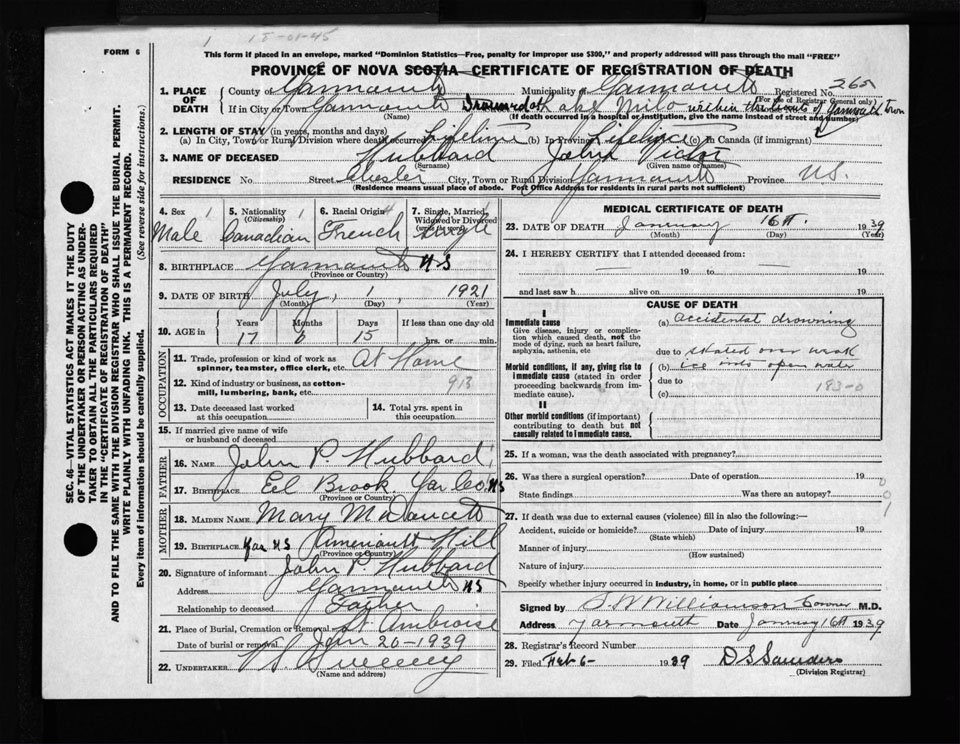 1 15-01-45
FORM 6
This form if placed in an envelope, marked "Dominion Statistics—Free, penalty for improper use $300," and properly addressed will pass through the mail "FREE"
PROVINCE OF NOVA SCOTIA—CERTIFICATE OF REGISTRATION OF DEATH
SEC. 46—VITAL STATISTICS ACT MAKES IT THE DUTY
OF THE UNDERTAKER OR PERSON ACTING AS UNDER-
TAKER TO OBTAIN ALL THE PARTICULARS REQUIRED
IN THE "CERTIFICATE OF REGISTRATION OF DEATH"
AND TO FILE THE SAME WITH THE DIVISION REGISTRAR WHO SHALL ISSUE THE BURIAL PERMIT.
WRITE PLAINLY WITH UNFADING INK. THIS IS A PERMANENT RECORD.
Every item of information should be carefully supplied. (See reverse side for instructions.)
1. PLACE OF DEATH County of Yarmouth Municipality of Yarmouth Registered No. 265
(For use of Registrar General only)
If in City or Town Yarmouth Drowned at Lake Milo within the limits of Yarmouth town
(Name) (If death occurred in a hospital or institution, give the name instead of street and number)
2. LENGTH OF STAY (in years, months and days)
(a) In City, Town or Rural Division where death occurred Lifetime (b) In Province Lifetime (c) in Canada (if immigrant)
3. NAME OF DECEASED Hubbard John Victor
(Surname) (Given name or names)
RESIDENCE No. Street Chester City, Town or Rural Division Yarmouth Province N.S.
(Residence means usual place of abode. Post Office Address for residents in rural parts not sufficient)
4. Sex Male
5. Nationality (Citizenship) Canadian
6. Racial Origin French
7. Single, Married, Widowed or Divorced Single
8. BIRTHPLACE Yarmouth N S
(Province or Country)
9. DATE OF BIRTH July 1 1921
(Month) (Day) (Year)
10. AGE in Years Months Days If less than one day old
17 6 15 hrs. or min.
OCCUPATION
11. Trade, profession or kind of work as spinner, teamster, office clerk, etc. At Home
12. Kind of industry or business, as cotton-mill, lumbering, bank, etc. 913
13. Date deceased last worked at this occupation
14. Total yrs. spent in this occupation
15. If married give name of wife or husband of deceased
FATHER
16. NAME John P. Hubbard
17. BIRTHPLACE Eel Brook Yar Co. NS
(Province or Country)
MOTHER
18. MAIDEN NAME Mary M Doucett
19. BIRTHPLACE Yar NS Amirault Hill
(Province or Country)
20. Signature of informant John P. Hubbard
Address Yarmouth NS
Relationship to deceased Father
21. Place of Burial, Cremation or Removal St. Ambroise
Date of burial or removal Jan 20-1939
22. UNDERTAKER Sweeney
(Name and address)
MEDICAL CERTIFICATE OF DEATH
23. DATE OF DEATH January 16th 1939
(Month) (Day) (Year)
24. I HEREBY CERTIFY that I attended deceased from:
— 19 to — 19
and last saw h alive on 19
CAUSE OF DEATH
I
Immediate cause
Give disease, injury or complication which caused death, not the mode of dying, such as heart failure, asphyxia, asthenia, etc
(a) accidental drowning
due to skated over weak
Morbid conditions, if any, giving rise to immediate cause (stated in order proceeding backwards from immediate cause).
(b) ice into open water
due to 183-0
(c)
II
Other morbid conditions (if important) contributing to death but not causally related to immediate cause.
25. If a woman, was the death associated with pregnancy?
26. Was there a surgical operation? Date of operation 19
State findings Was there an autopsy?
27. If death was due to external causes (violence) fill in also the following:—
Accident, suicide or homicide? Date of injury 19
(State which)
Manner of injury
(How sustained)
Nature of injury
Specify whether injury occurred in industry, in home, or in public place
Signed by S W Williamson Coroner M.D.
Address Yarmouth Date January 16th 1939
28. Registrar's Record Number
29. Filed Feb 6- 1939 D S Saunders
(Division Registrar)